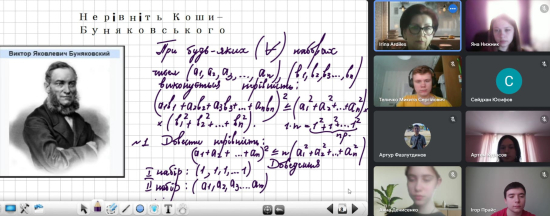 Нерівніть Коши–
Буняковського
Виктор Яковлевич Буняковский
При будь-яких (∀) наборах
чисел (a₁, a₂, a₃, ..., aₙ), (b₁, b₂, b₃...bₙ)
виконується нерівність:
(a₁b₁ + a₂b₂ + a₃b₃ + ... + aₙbₙ)² ≤ (a₁² + a₂² + ... + aₙ²)×
× (b₁² + b₂² + ... + bₙ²).
1·n = 1² + 1² + ... 1²
n р.
№1 Довести нерівність:
(a₁ + a₂ + ... + aₙ)² ≤ n(a₁² + a₂² + ... + aₙ²)
Доведення
I набір: (1, 1, 1, ... 1)
II набір: (a₁, a₂, a₃ ... aₙ)
Яна Нижник
Сейдхан Юсифов
С
Артур Фезлутдинов
Денисенко